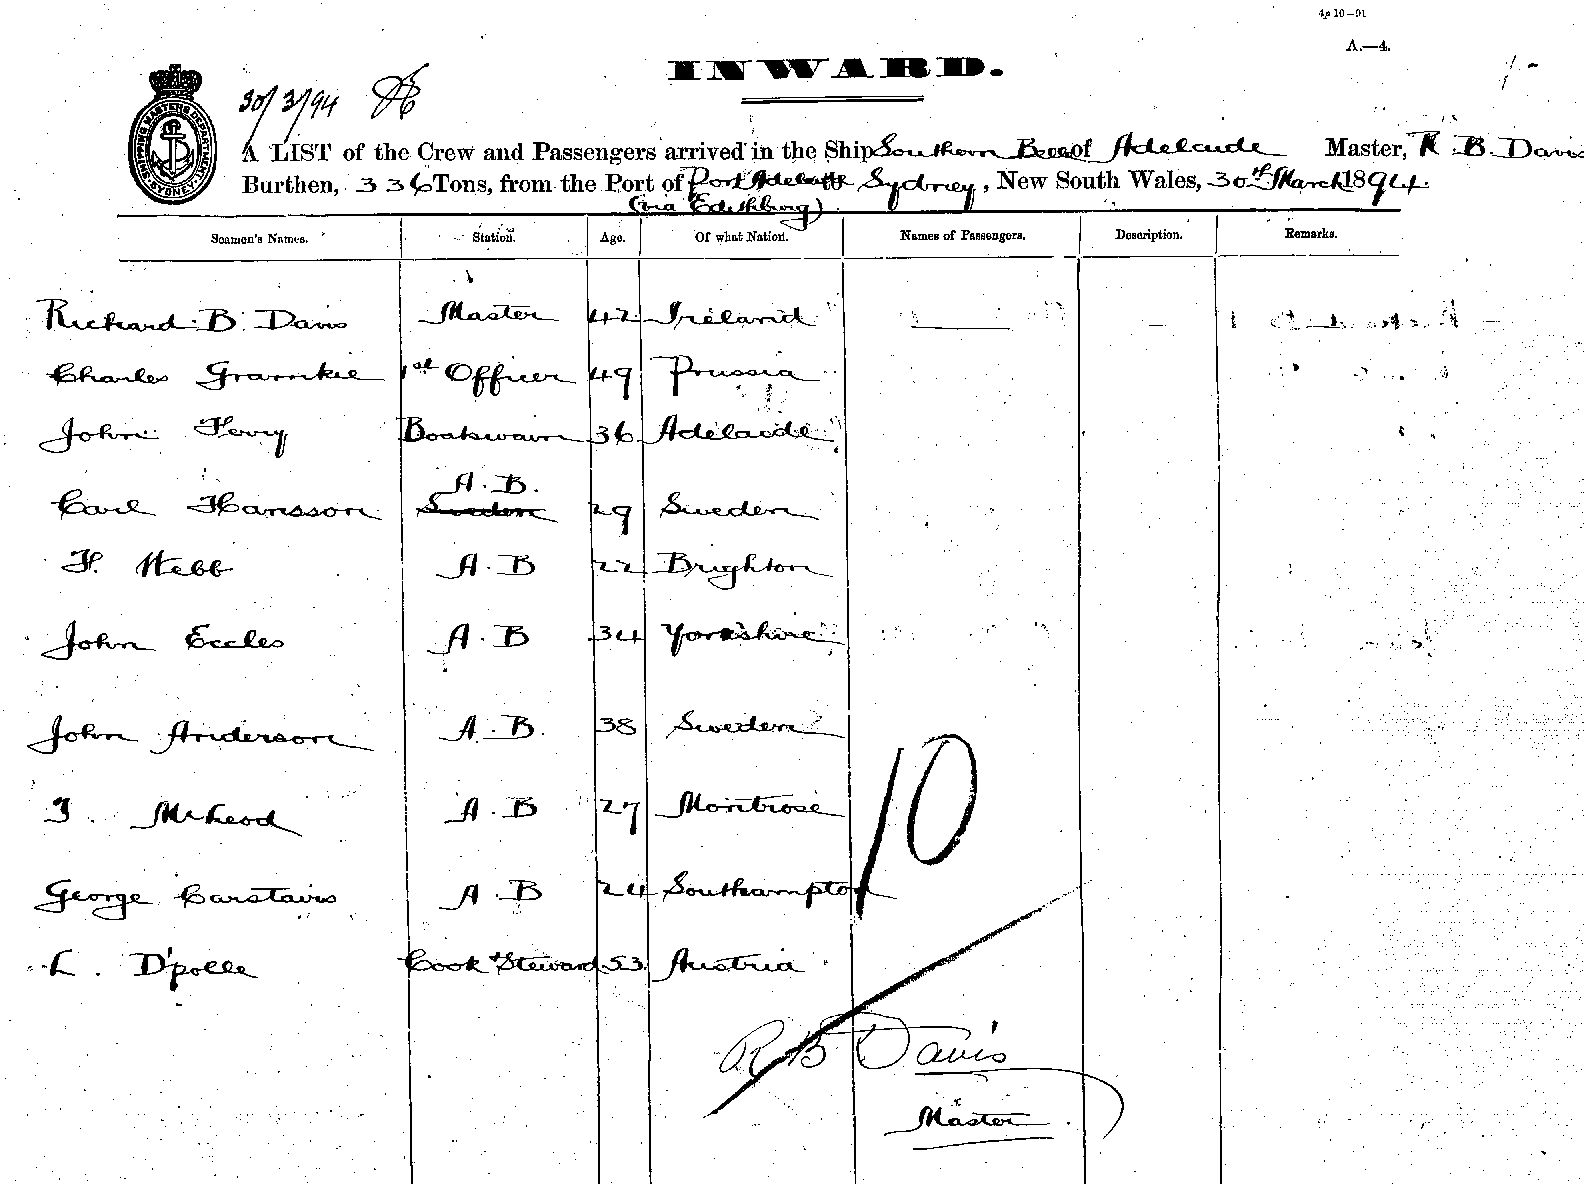 4p 10—91
A.—4.
INWARD.
30/3/94
SHIPPING MASTERS DEPARTMENT SYDNEY
A LIST of the Crew and Passengers arrived in the Ship Southern Belle of Adelaide Master, R. B. Davis
Burthen, 336 Tons, from the Port of Port Adelaide Sydney, New South Wales, 30th March 1894.
(via Edithburg)
Seamen's Names. Station. Age. Of what Nation. Names of Passengers. Description. Remarks.
Richard B Davis Master 42 Ireland — —
Charles Gramkie 1st Officer 49 Prussia
John Terry Boatswain 36 Adelaide
A.B.
Carl Hansson Sweden 29 Sweden
F. Webb A.B 22 Brighton
John Eccles A.B 34 Yorkshire
John Anderson A.B. 38 Sweden
McLeod A.B 27 Montrose
10
George Carstairs A.B 24 Southampton
L. D'polle Cook & Steward 53 Austria
R B Davis
Master.